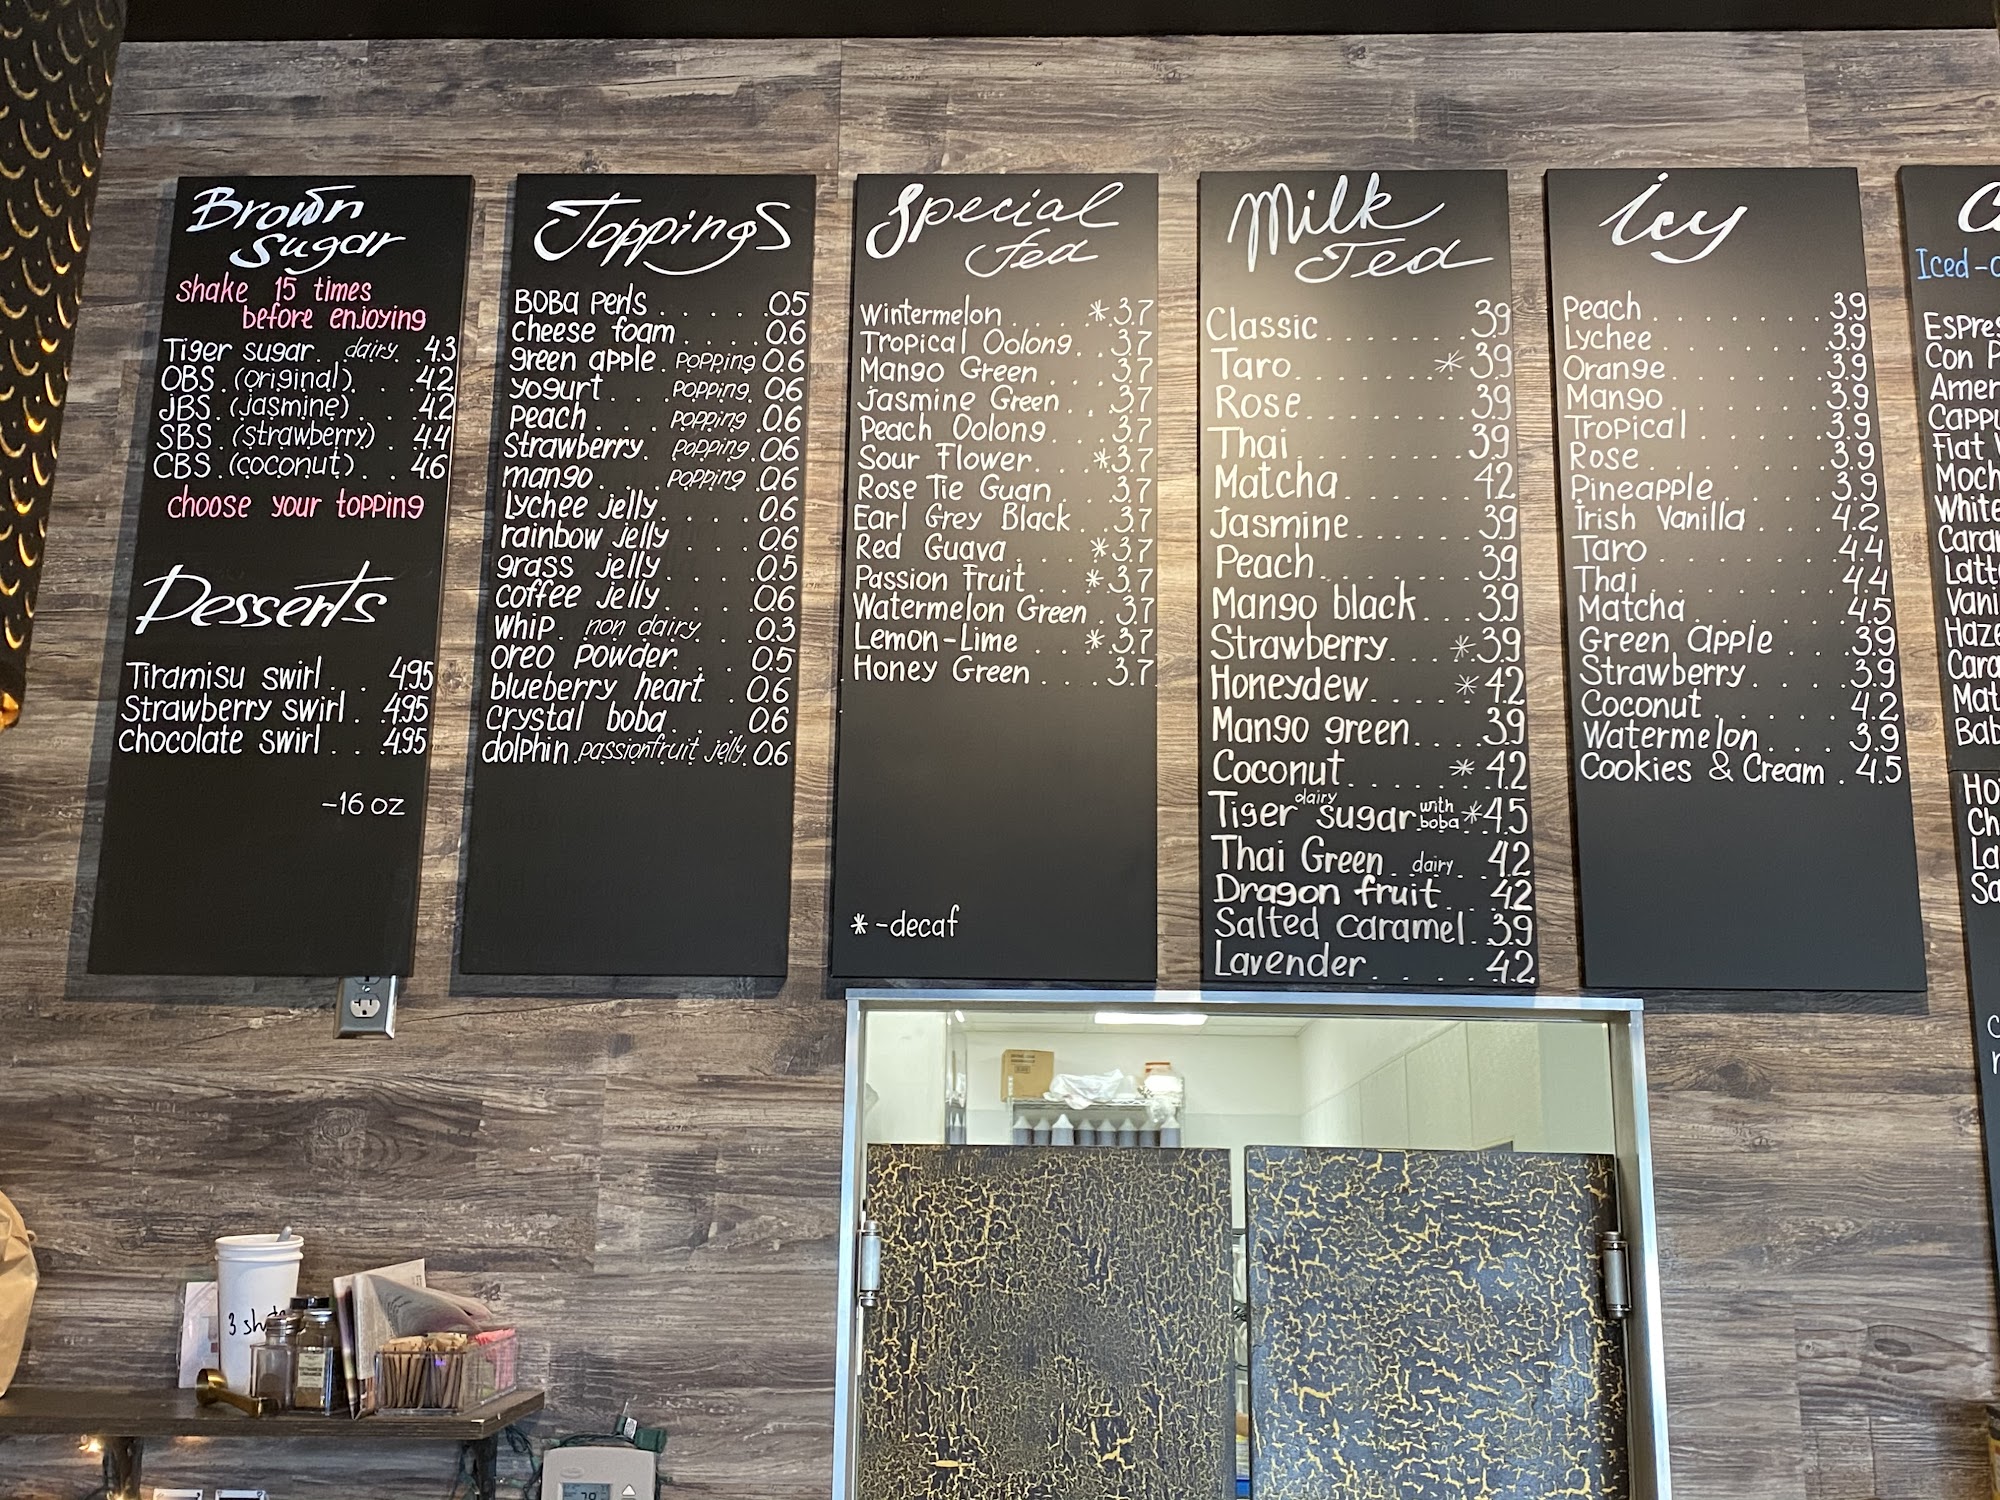 Brown
Sugar
shake 15 times
before enjoying
Tiger sugar. dairy. .4.3
OBS.(original). . .4.2
JBS.(jasmine). . .4.2
SBS.(strawberry). .4.4
CBS.(coconut). . 4.6
choose your topping
Desserts
Tiramisu swirl. . . 4.95
Strawberry swirl. .4.95
chocolate swirl. . .4.95
-16 oz
Toppings
BOBa perls . . . . .0.5
cheese foam. . . . .0.6
green apple. popping 0.6
yogurt. . . popping. 0.6
peach. . . popping .0.6
Strawberry. popping .0.6
mango. . . popping .0.6
Lychee jelly. . . . .0.6
rainbow jelly. . . .0.6
grass jelly. . . . .0.5
coffee jelly. . . . .0.6
whip. non dairy. . .0.3
oreo powder. . . .0.5
blueberry heart . .0.6
crystal boba. . . .0.6
dolphin.passionfruit jelly.0.6
Special
Tea
Wintermelon. . . .*3.7
Tropical Oolong. . 3.7
Mango Green . . . 3.7
Jasmine Green. . .3.7
Peach Oolong. . .3.7
Sour Flower. . .*3.7
Rose Tie Guan . . 3.7
Earl Grey Black. .3.7
Red Guava. . . .*3.7
Passion Fruit. . .*3.7
Watermelon Green. 3.7
Lemon-Lime . . .*3.7
Honey Green . . . .3.7
*-decaf
Milk
Tea
Classic. . . . . . 3.9
Taro. . . . . . .*3.9
Rose. . . . . . .3.9
Thai. . . . . . .3.9
Matcha. . . . . .4.2
Jasmine. . . . .3.9
Peach. . . . . .3.9
Mango black. . .3.9
Strawberry. . . .*3.9
Honeydew. . . .*4.2
Mango green. . . .3.9
Coconut. . . . .*4.2
Tiger dairy sugar with boba *4.5
Thai Green. dairy. . 4.2
Dragon fruit. . . 4.2
Salted caramel. .3.9
Lavender. . . . .4.2
Icy
Peach . . . . . . .3.9
Lychee . . . . . .3.9
Orange. . . . . .3.9
Mango. . . . . .3.9
Tropical . . . . .3.9
Rose. . . . . . .3.9
Pineapple. . . . .3.9
Irish Vanilla. . . .4.2
Taro . . . . . . 4.4
Thai. . . . . . .4.4
Matcha. . . . . .4.5
Green apple . . .3.9
Strawberry. . . .3.9
Coconut. . . . .4.2
Watermelon. . . .3.9
Cookies & Cream . 4.5
Iced-
Con
3